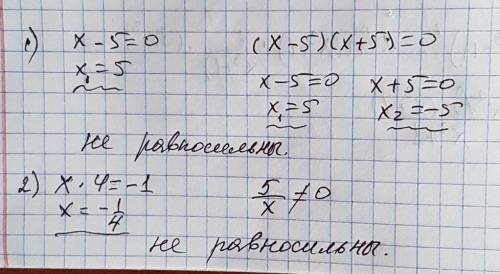 1) x - 5 = 0 (x - 5)(x + 5) = 0
x₁ = 5 x - 5 = 0 x + 5 = 0
x₁ = 5 x₂ = -5
не равносильны.
2) x · 4 = -1 5/x ≠ 0
x = -1/4
не равносильны.